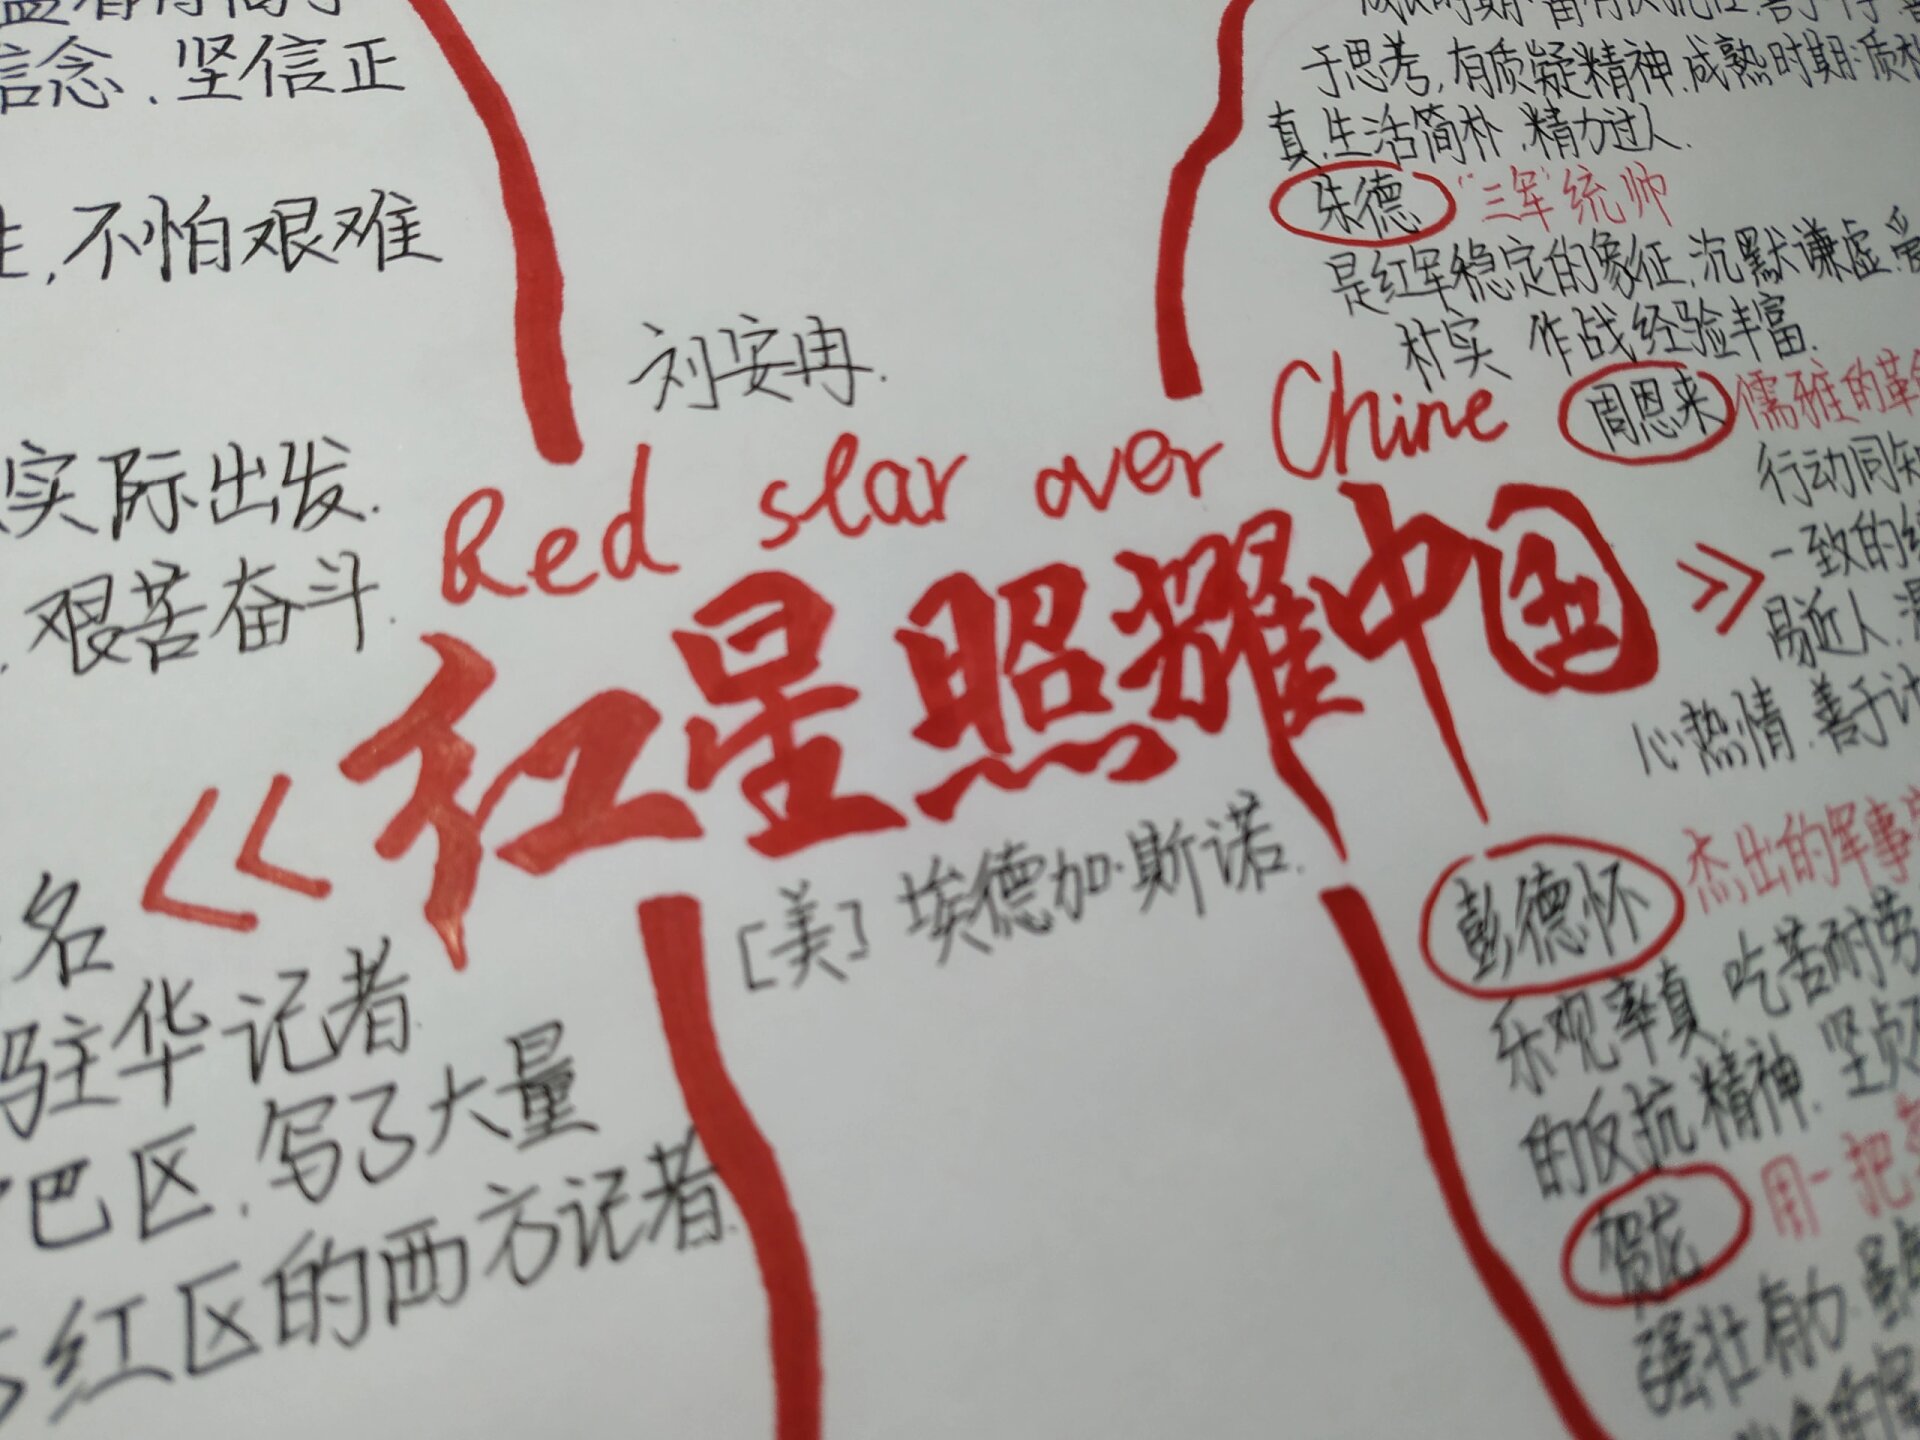 信念.坚信正
不怕艰难
实际出发.
艰苦奋斗.
名
驻华记者.
巴区.写了大量
红区的西方记者.
刘安冉.
Red star over Chine
《红星照耀中国》
[美] 埃德加·斯诺.
于思考,有质疑精神.成熟时期:质朴
真.生活简朴.精力过人.
朱德 "三军"统帅
是红军稳定的象征,沉默谦虚.
朴实 作战经验丰富.
周恩来 儒雅的革命
行动同知
一致的
易近人.
心热情.善于
彭德怀 杰出的军事
乐观率真.吃苦耐劳
的反抗精神.坚贞
贺龙 用一把
强壮有力.